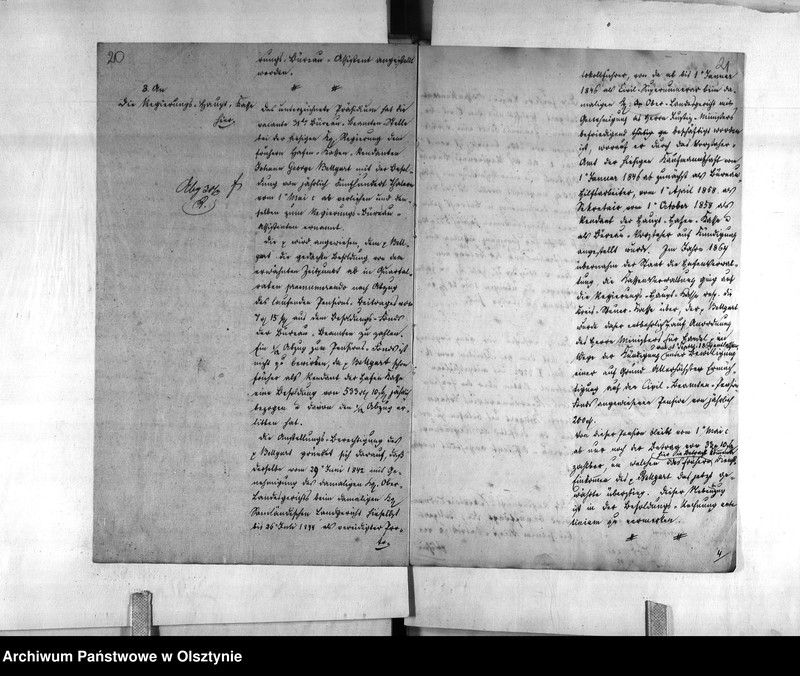 20
rungs-Büreau-Assistent angestellt
worden.
3. An
die Regierungs-Haupt-Kasse
hier.
Das unterzeichnete Präsidium hat die
vacante Büreau-Beamten-Stelle
bei der hiesigen Kg. Regierung dem
früheren Hafen-Kassen-Rendanten
Johann George Bellgart mit der Besol-
dung von jährlich Fünfhundert Thalern
vom 1t Mai c ab verliehen und den-
selben zum Regierungs-Büreau-
Assistenten ernannt.
Die p. wird angewiesen, dem p. Bell-
gart die gedachte Besoldung von dem
erwähnten Zeitpunct ab in Quartal-
raten praenumerando nach Abzug
des laufenden Pensions-Beitrages von
aus dem Besoldungs-Fonds
der Büreau-Beamten zu zahlen.
Ein 1/12 Abzug zum Pensions-Fonds ist
nicht zu bewirken, da p. Bellgart schon
früher als Rendant der Hafen-Kasse
eine Besoldung von 533 rt 10 sg jährlich
bezogen u. davon den 1/12 Abzug er-
litten hat.
Die Anstellungs-Berechtigung des
p. Bellgart gründet sich darauf, daß
derselbe vom 29t Juni 1842 mit Ge-
nehmigung des damaligen Kg. Ober-
Landesgerichts beim damaligen Kg.
Samländischen Landgericht hieselbst
bis 26t Juli als vereidigter Pro-
to-
21
tokollführer, von da ab bis 1t Januar
1846 als Civil-Supernumerar beim da-
maligen Kg. Ober-Landesgericht mit
Genehmigung des Herrn Justiz-Ministers
befriedigend beschäftigt worden
ist, worauf er durch das Vorsteher-
Amt der hiesigen Kaufmannschaft vom
1t Januar 1846 ab zunächst als Büreau
Hilfsarbeiter, vom 1t April 1858 als
Sekretair, vom 1t October 1858 als
Rendant der Haupt-Hafen-Kasse u.
als Büreau-Vorsteher auf Kündigung
angestellt wurde. Im Jahre 1864
übernahm der Staat die Hafenverwal-
tung, die Kassenverwaltung ging auf
die Regierungs-Haupt-Kasse resp. die
Kreis-Steuer-Kasse über, der p. Bellgart
wurde daher entbehrlich, auf Anordnung
des Herrn Ministers für Handel p. im
Wege der Kündigung unter Bewilligung
einer auf Grund Allerhöchster Ermäch-
tigung auf den Civil-Beamten-Pensions
Fonds angewiesenen Pension von jährlich
200 rt.
Von dieser Pension bleibt vom 1t Mai c
ab nur noch der Betrag von 33 rt 10 sg
zahlbar, um welchen das frühere Dienst-
Einkommen des p. Bellgart das jetzt ge-
währte überstieg. Dieser
ist in der Besoldungs-Rechnung
zu vermerken.
4
Archiwum Państwowe w Olsztynie